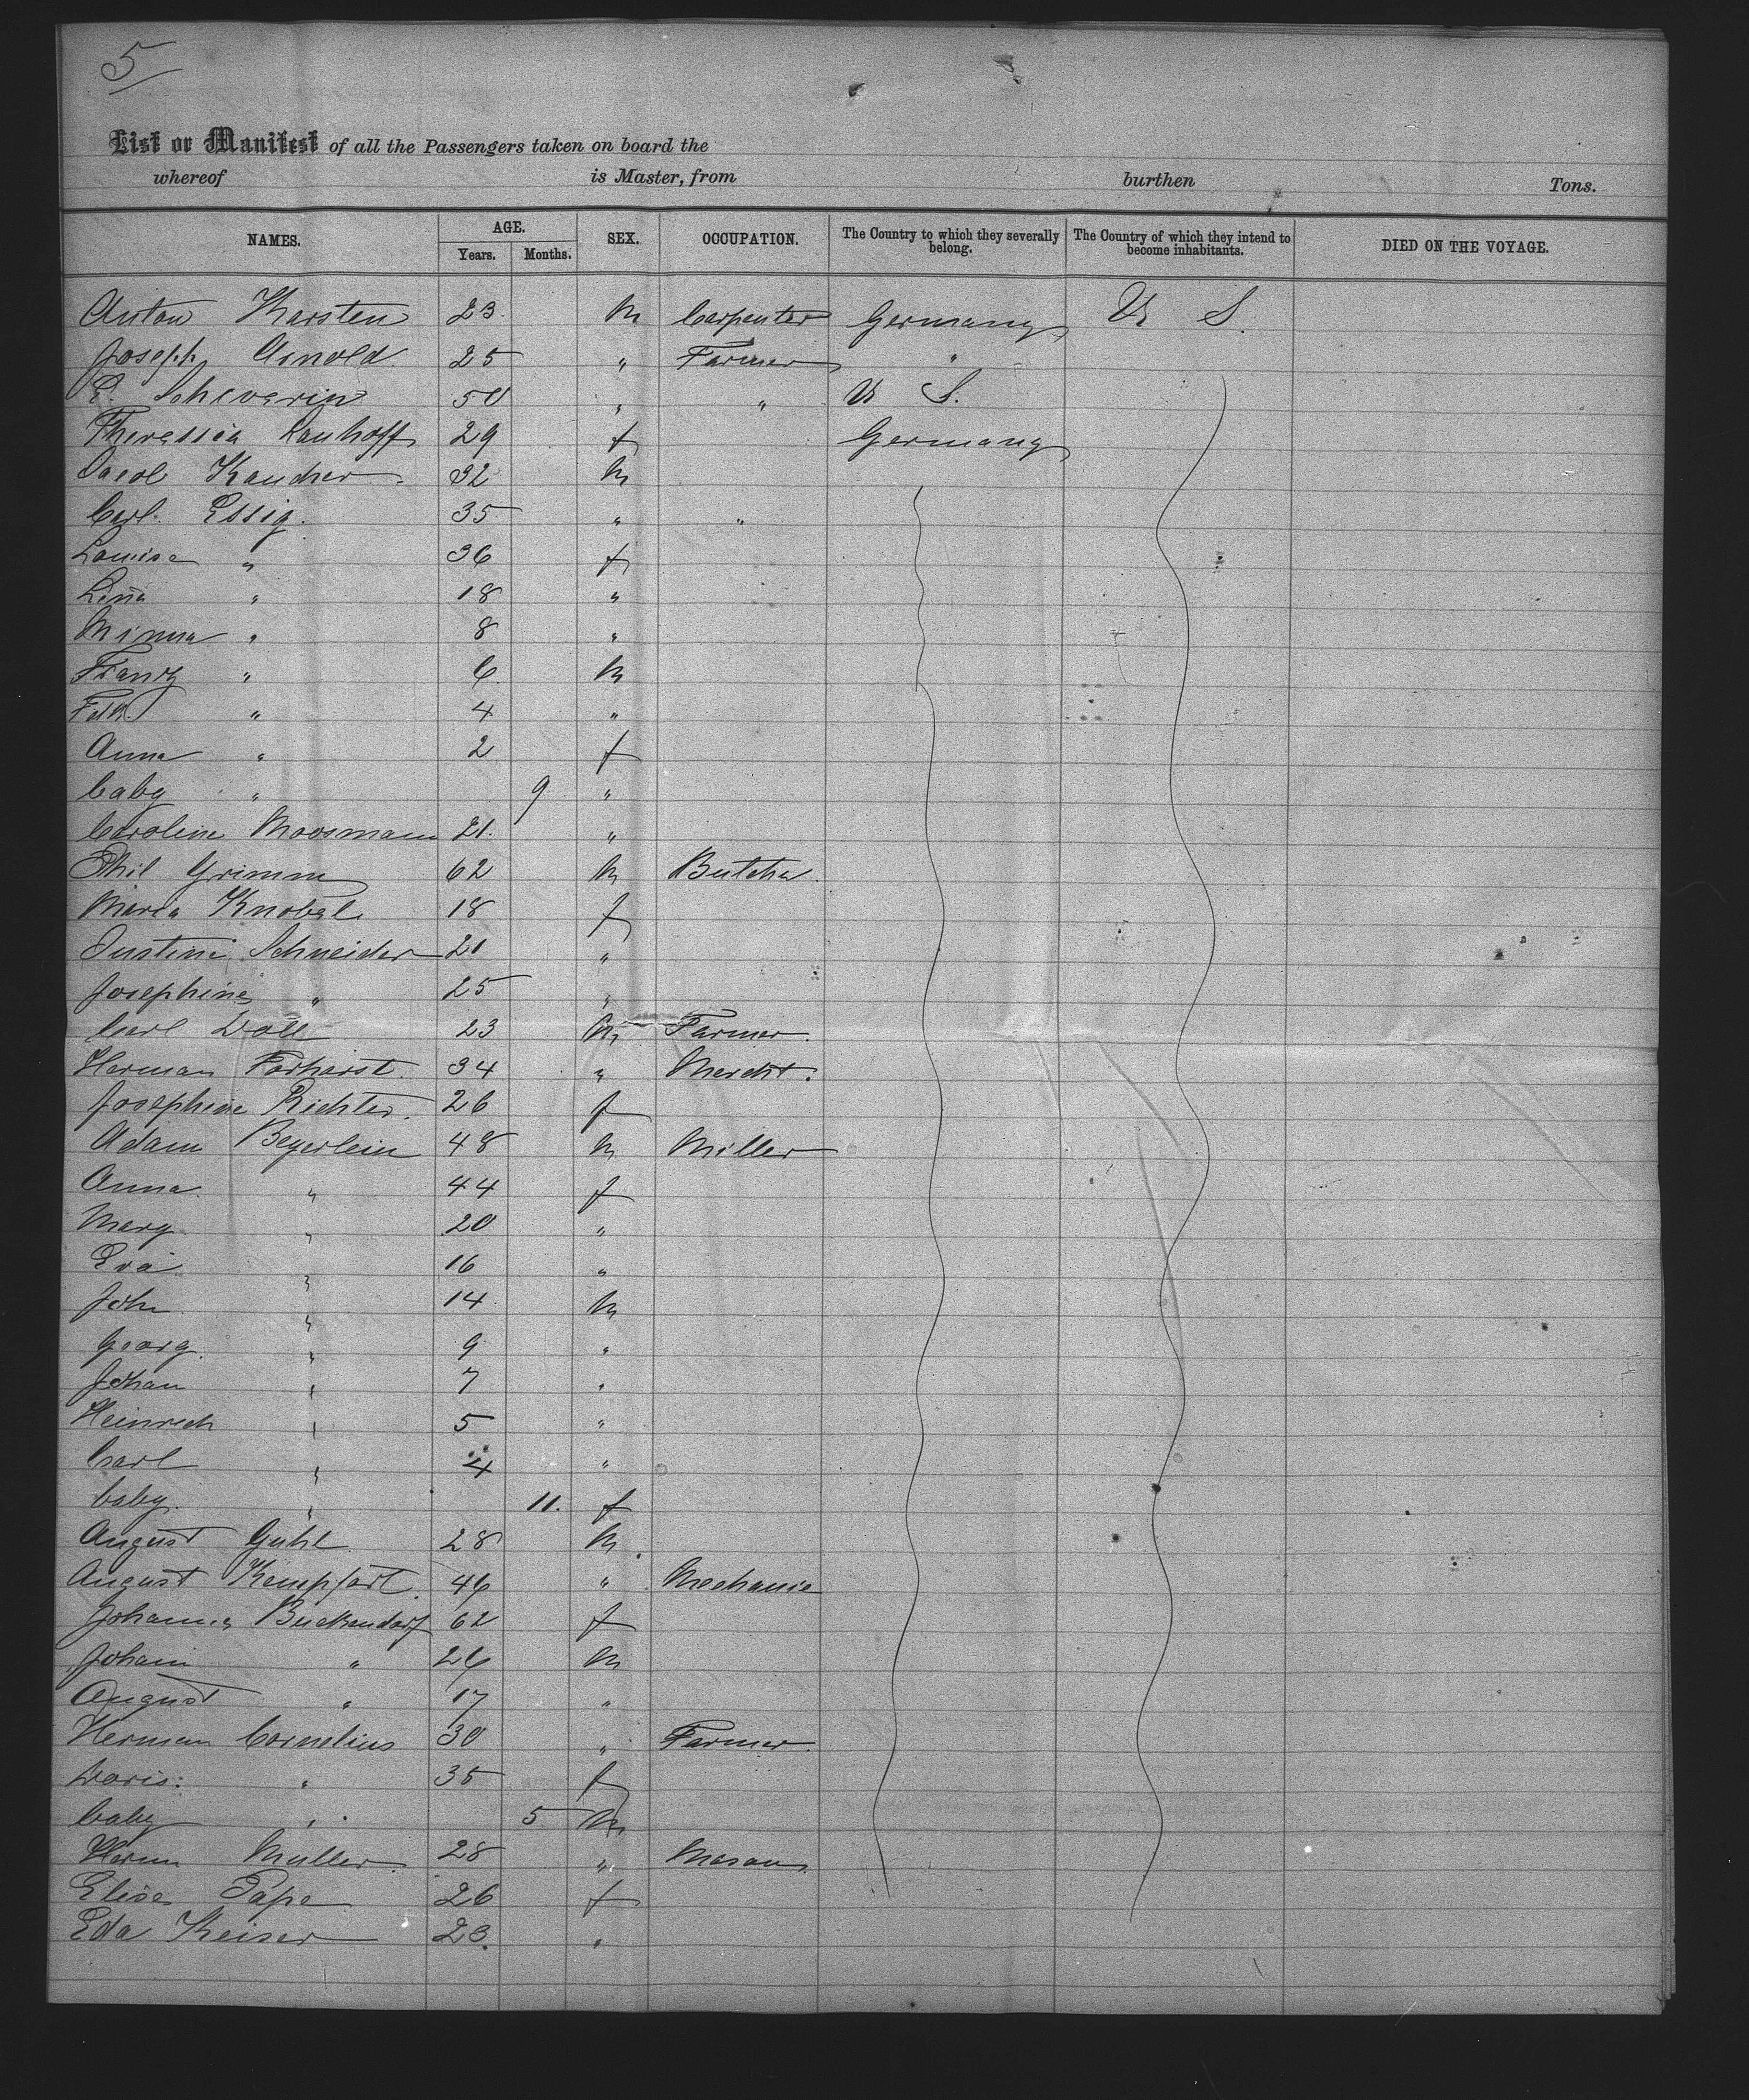 5
List or Manifest of all the Passengers taken on board the
whereof is Master, from burthen Tons.
NAMES. AGE. Years. Months. SEX. OCCUPATION. The Country to which they severally belong. The Country of which they intend to become inhabitants. DIED ON THE VOYAGE.
Anton Karsten 23. M Carpenter Germany U S.
Joseph Arnold 25 " Farmer "
E. Scheverin 50 " " U S.
Theressia Lauhoff 29 f Germany
Kaucher 32 M
Carl Essig. 35 " "
Louise " 36 f
Lina " 18 "
Minna " 8 "
Frantz " 6 M
" 4 "
Anna " 2 f
baby " 9 "
Caroline Moosmann 21. "
Phil Grimm 62 M Butcher
Maria Knobel 18 f
Justine Schneider 21 "
Josephine " 25 "
Carl Doll 23 M Farmer.
Herman 34 " Mercht.
Josephine Richter. 26 f
Adam Beyerlein 48 M Miller
Anna " 44 f
Marg " 20 "
Eva " 16 "
John " 14 M
Georg. " 9 "
Johan " 7 "
Heinrich " 5 "
Carl " 4 "
baby. " 11. f
August Guhl 28 M.
August 46 " Mechanic
Johanna Buckendorf 62 f
Johann " 26 M
August " 17 "
Herman Cornelius 30 " Farmer.
Doris: " 35 f
baby " 5 M
Herm Muller 28 " Mason
Elise Pape 26 f
Eda Keiser 23. "